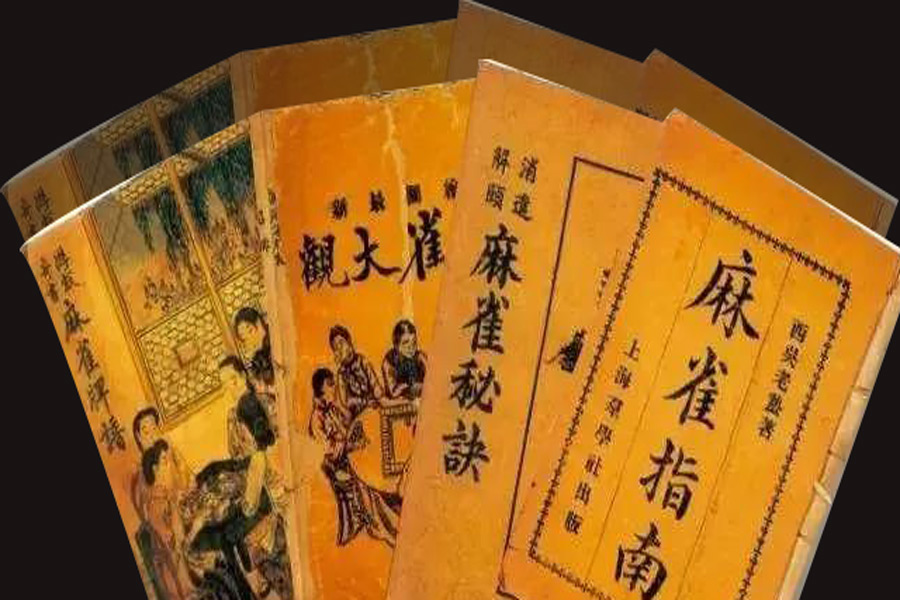 麻雀指南
西吳老愁著
上海羣學社出版
消遣
解頤
麻雀秘訣
雀大觀
新最圖
麻雀牌譜